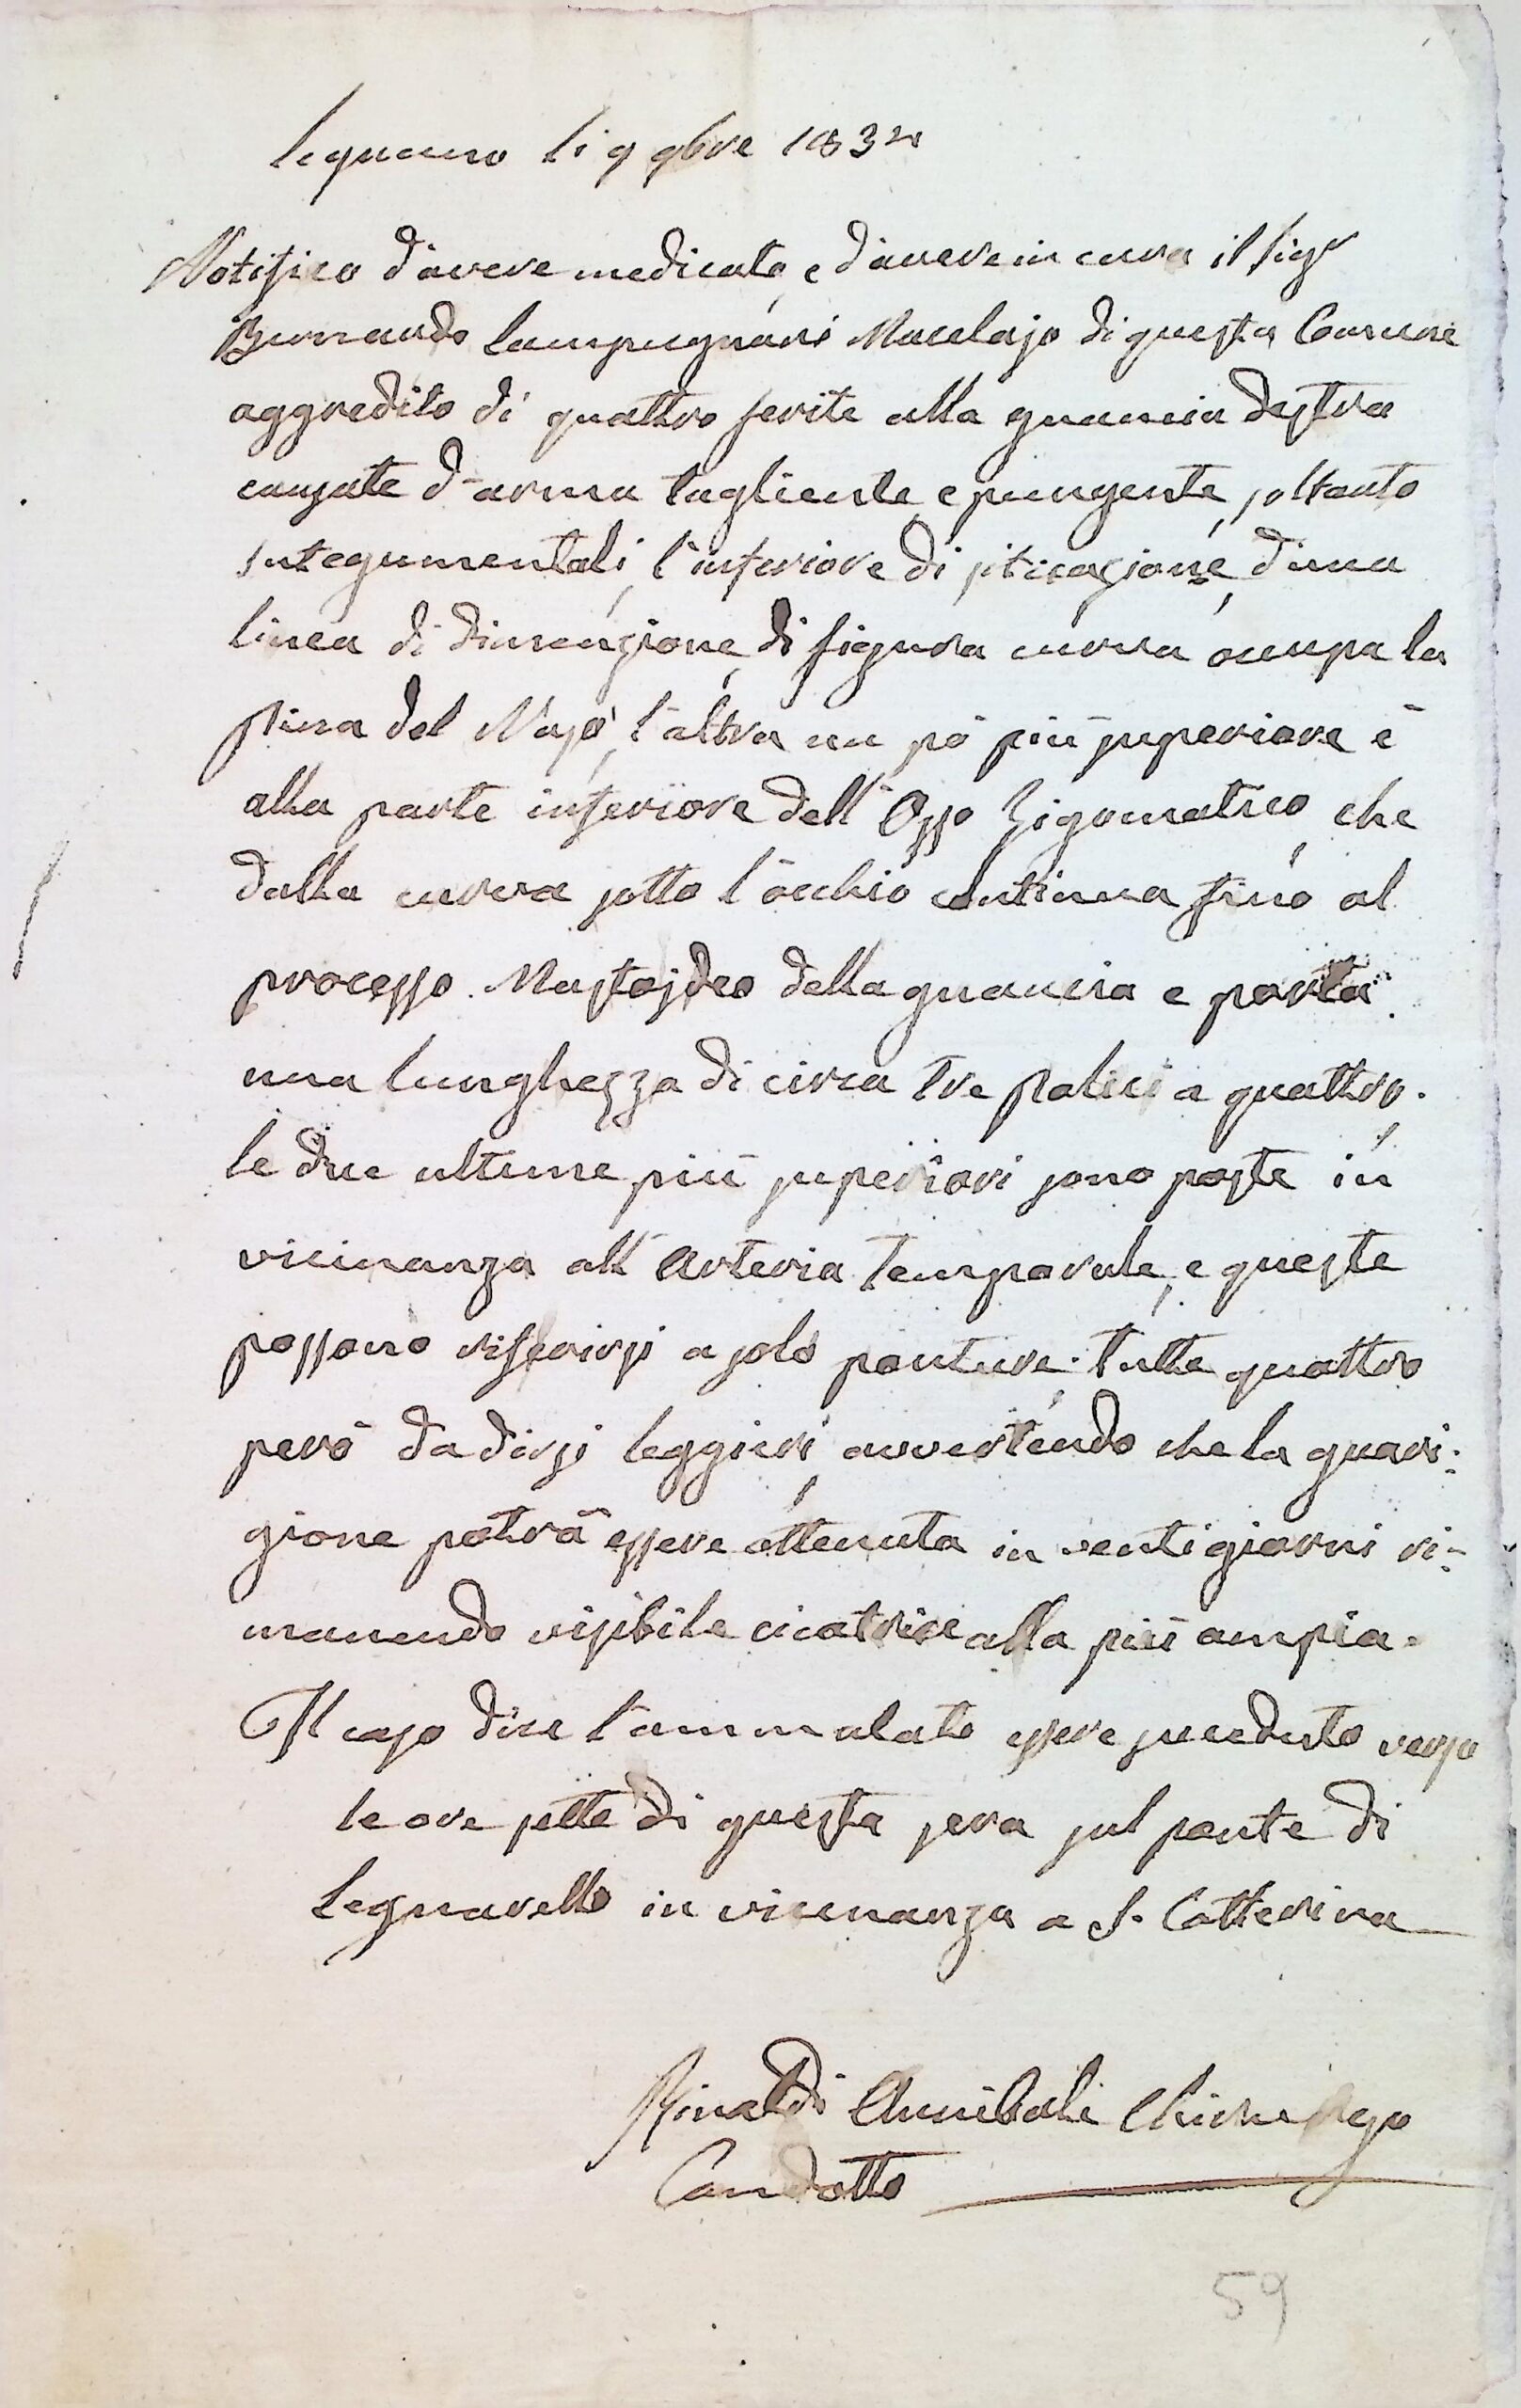 Legnano li 9 9bre 1832
Notifico d'avere medicato, e d'avere in cura il Sigr
Bernardo Lampugnani Macelajo di questa Comune
aggredito di quattro ferite alla guancia destra
causate d'arma tagliente, e pungente, soltanto
integumentali, l'inferiore di, d'una
linea di dimensione, di figura curva occupa la
pina del Naso, l'altra un pò più superiore è
alla parte inferiore dell'Osso Zigomatico, che
dalla curva sotto l'occhio continua fino al
processo Mastojdeo della guancia e porta
una lunghezza di circa tre polici a quattro.
le due ultime più superiori sono poste in
vicinanza all'Arteria Temporale, e queste
possono riferirsi a solo ponture. tutte quattro
però da dirsi leggieri, avvertendo che la guari-
gione potrà essere ottenuta in venti giorni ri-
manendo visibile cicatrice alla più ampia.
Il caso dice l'ammalato essere succeduto verso
le ore sette di questa sera sul ponte di
Legnarello in vicinanza a S. Catterina
Rinaldi Annibale Chirurgo
Condotto
59